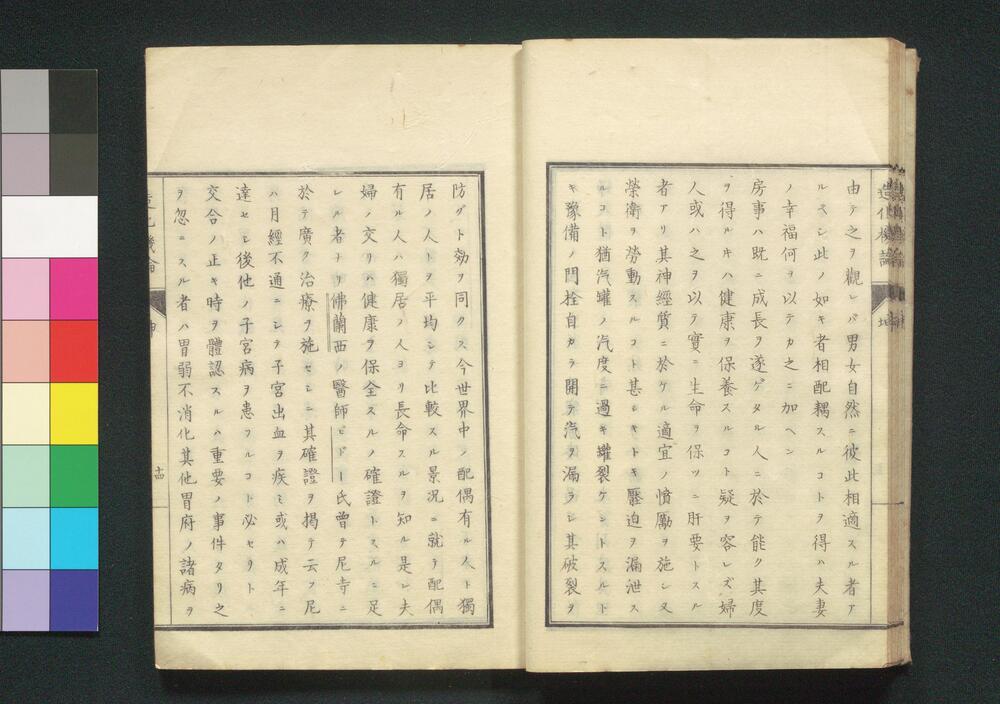 造化機論
坤
由テ之ヲ觀レバ男女自然ニ彼此相適スル者ア
ルベシ此ノ如キ者相配耦スルコトヲ得ハ夫妻
ノ幸福何ヲ以テカ之ニ加ヘン
房事ハ既ニ成長ヲ遂ゲタル人ニ於テ能ク其度
ヲ得ルキハ健康ヲ保養スルコト疑ヲ容レズ婦
人或ハ之ヲ以テ實ニ生命ヲ保ツニ肝要トスル
者アリ其神經質ニ於ケル適宜ノ憤勵ヲ施シ又
榮衛ヲ勞動スルコト甚シキトキ壓迫ヲ漏泄ス
ルコト猶汽罐ノ汽度ニ過キ罐裂ケントスルト
キ豫備ノ閂栓自カラ開テ汽ヲ漏ラシ其破裂ヲ
防グト効ヲ同クス今世界中ノ配偶有ル人ト獨
居ノ人トヲ平均シテ比較スル景況ニ就テ配偶
有ル人ハ獨居ノ人ヨリ長命スルヲ知ル是レ夫
婦ノ交リハ健康ヲ保全スルノ確證トスルニ足
レル者ナリ佛蘭西ノ醫師ビドー氏曾テ尼寺ニ
於テ廣ク治療ヲ施セシニ其確證ヲ揭テ云フ尼
ハ月經不通ニシテ子宮出血ヲ疾ミ或ハ成年ニ
達セシ後他ノ子宮病ヲ患フルコト必セリト
交合ノ正キ時ヲ體認スルハ重要ノ事件タリ之
ヲ忽ニスル者ハ胃弱不消化其他胃府ノ諸病ヲ
造化機論
坤
十四